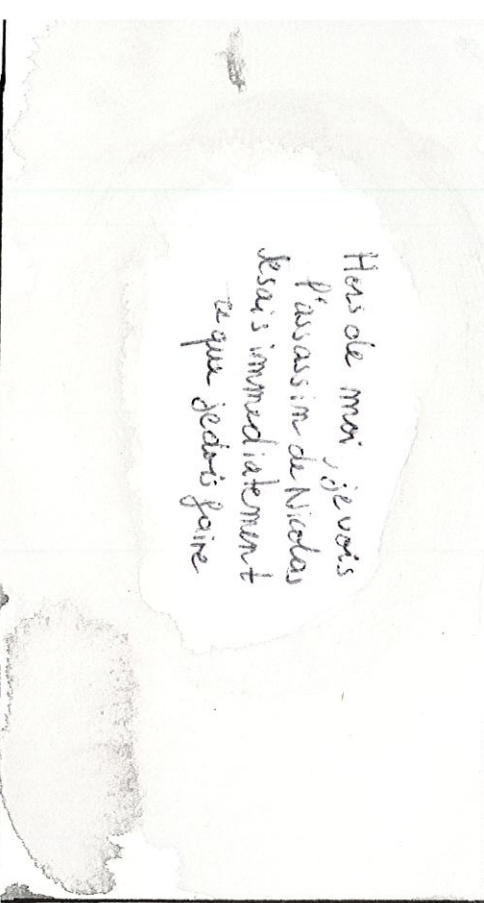 Hors de moi, je vois
l'assassin de Nicolas
Je sais immediatement
ce que je dois faire